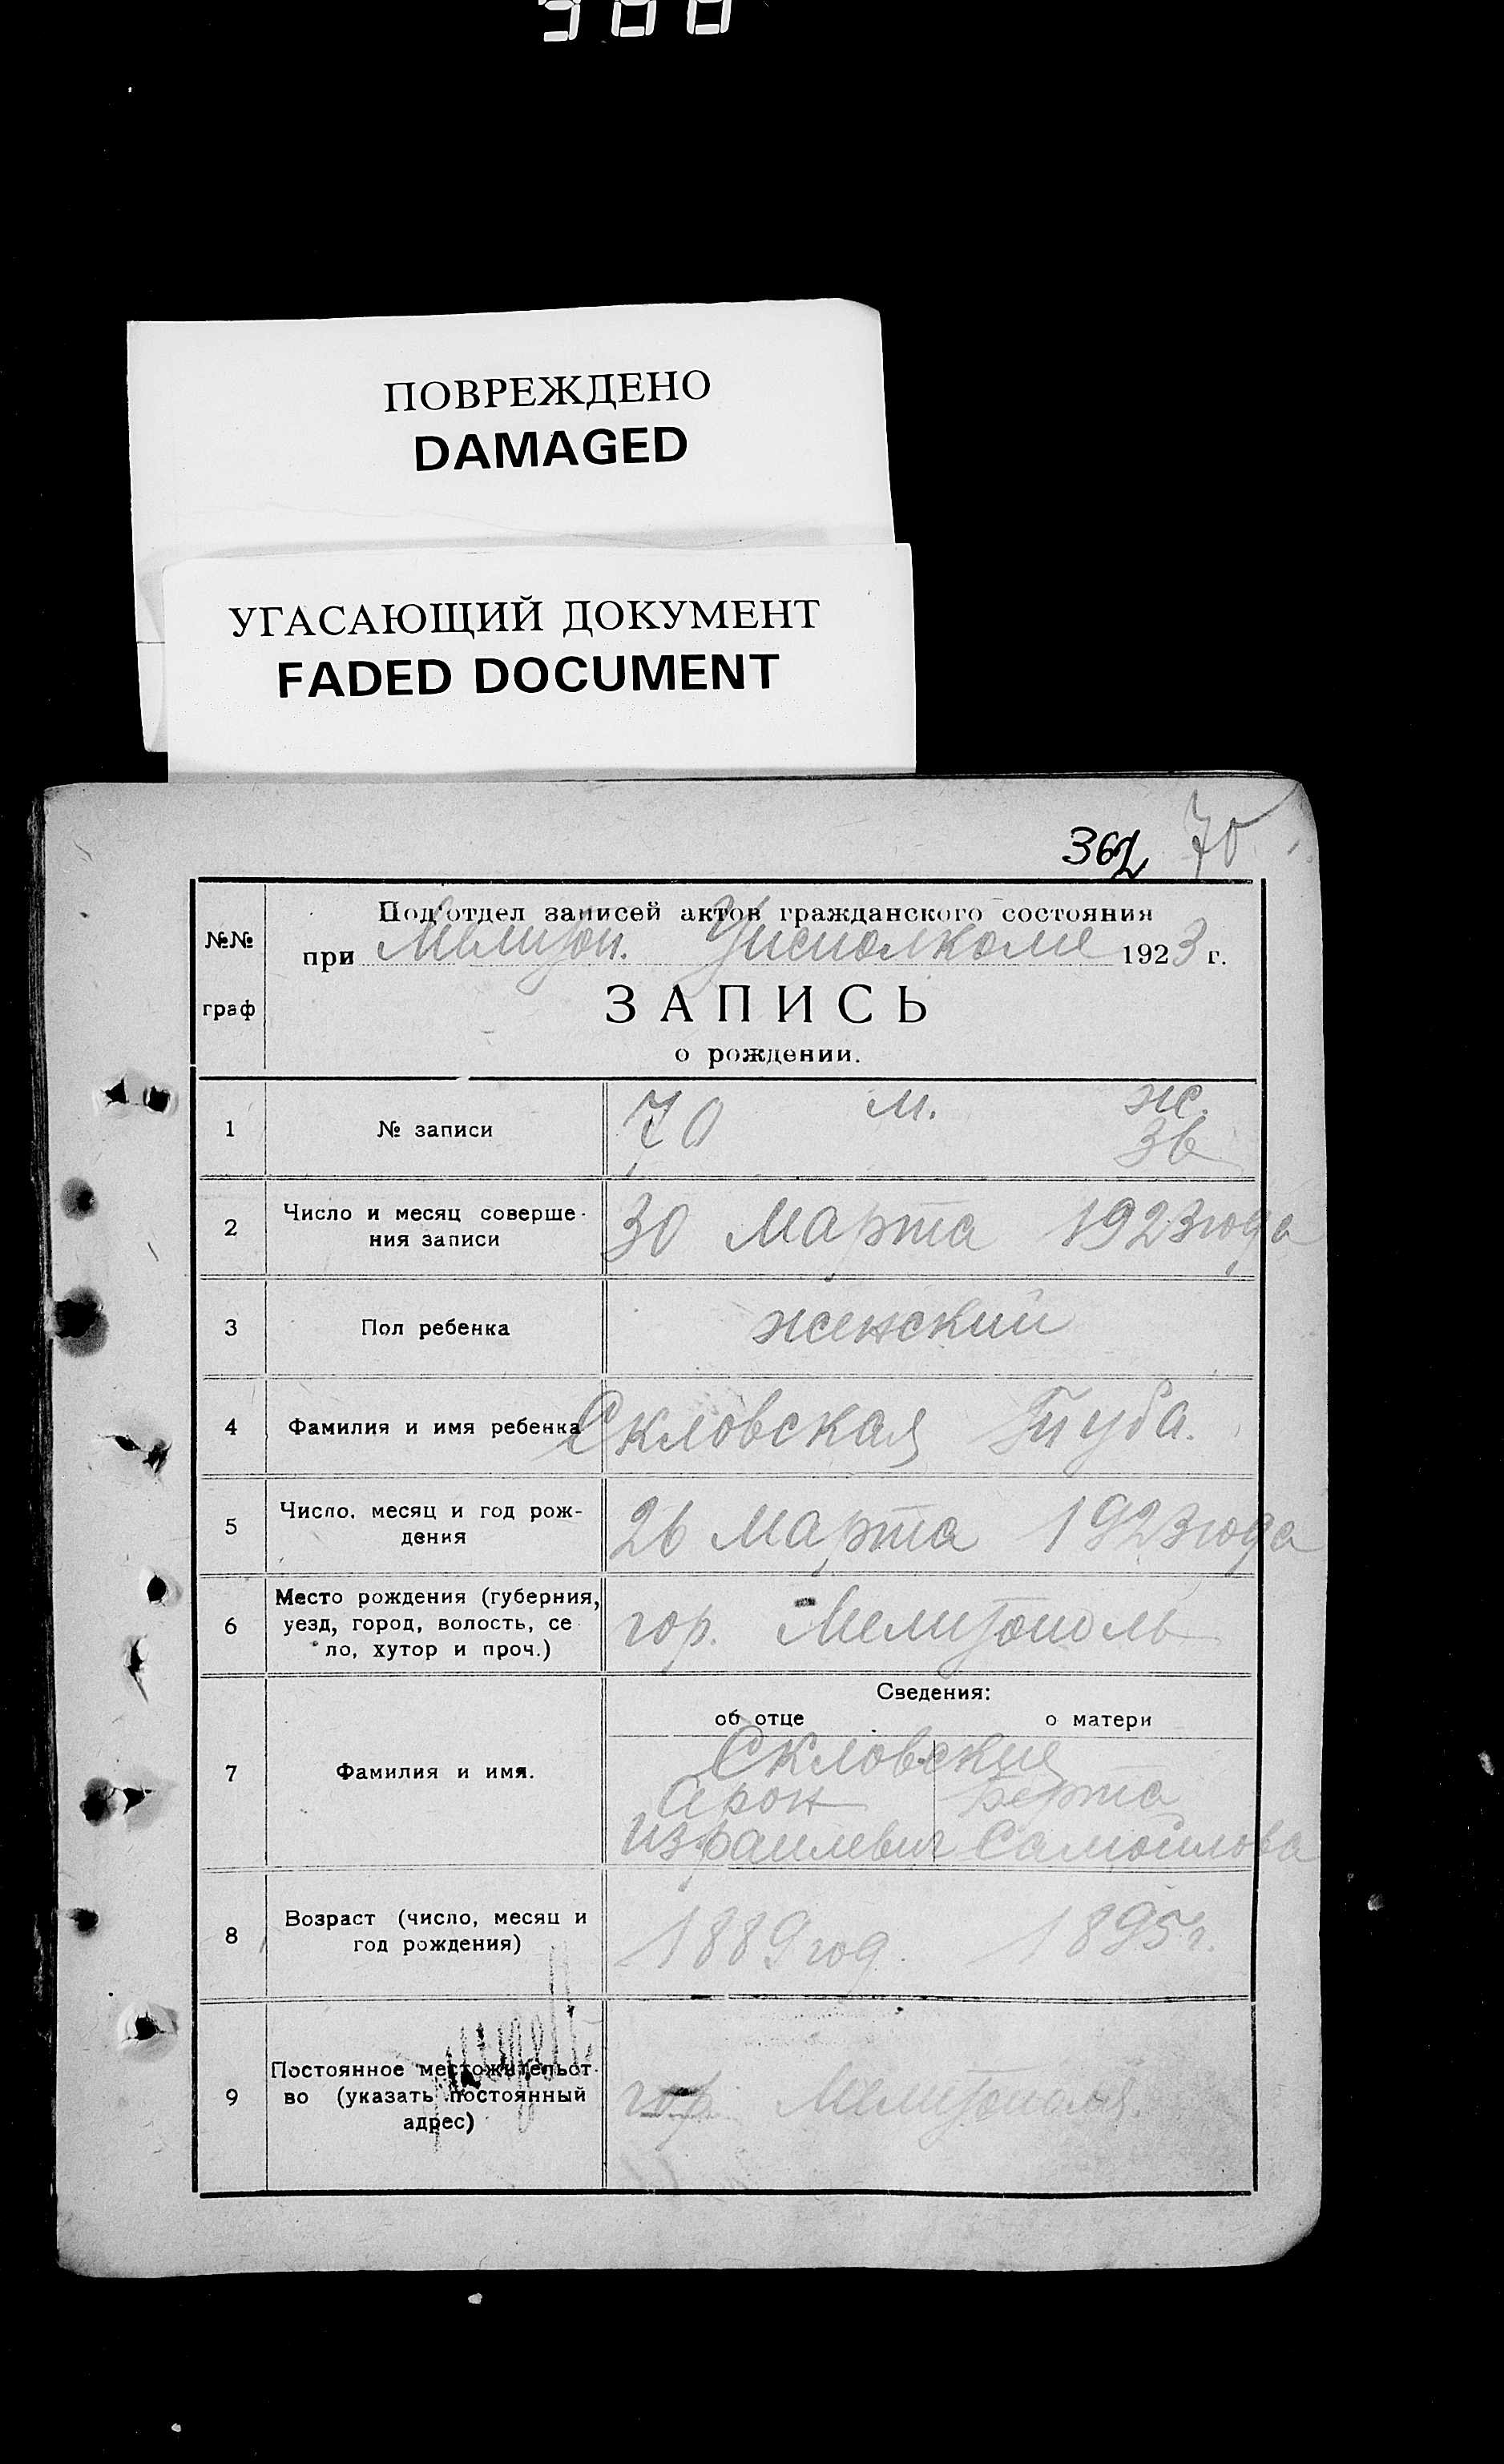 300
ПОВРЕЖДЕНО
DAMAGED
УГАСАЮЩИЙ ДОКУМЕНТ
FADED DOCUMENT
362 70
№№ граф
Подотдел записей актов гражданского состояния
при Мелитоп. Уисполкоме 1923 г.
ЗАПИСЬ
о рождении.
1 № записи 70 м. ж.
36
2 Число и месяц соверше-
ния записи 30 Марта 1923 года
3 Пол ребенка женский
4 Фамилия и имя ребенка Скловская Гнуба.
5 Число, месяц и год рож-
дения 26 Марта 1923 года
6 Место рождения (губерния,
уезд, город, волость, се
ло, хутор и проч.) гор. Мелитополь
Сведения:
об отце о матери
7 Фамилия и имя. Скловские
Арон Берта
Израилевич Самойлова
8 Возраст (число, месяц и
год рождения) 1889 год. 1895 г.
9 Постоянное местожительст-
во (указать постоянный
адрес) гор. Мелитополь